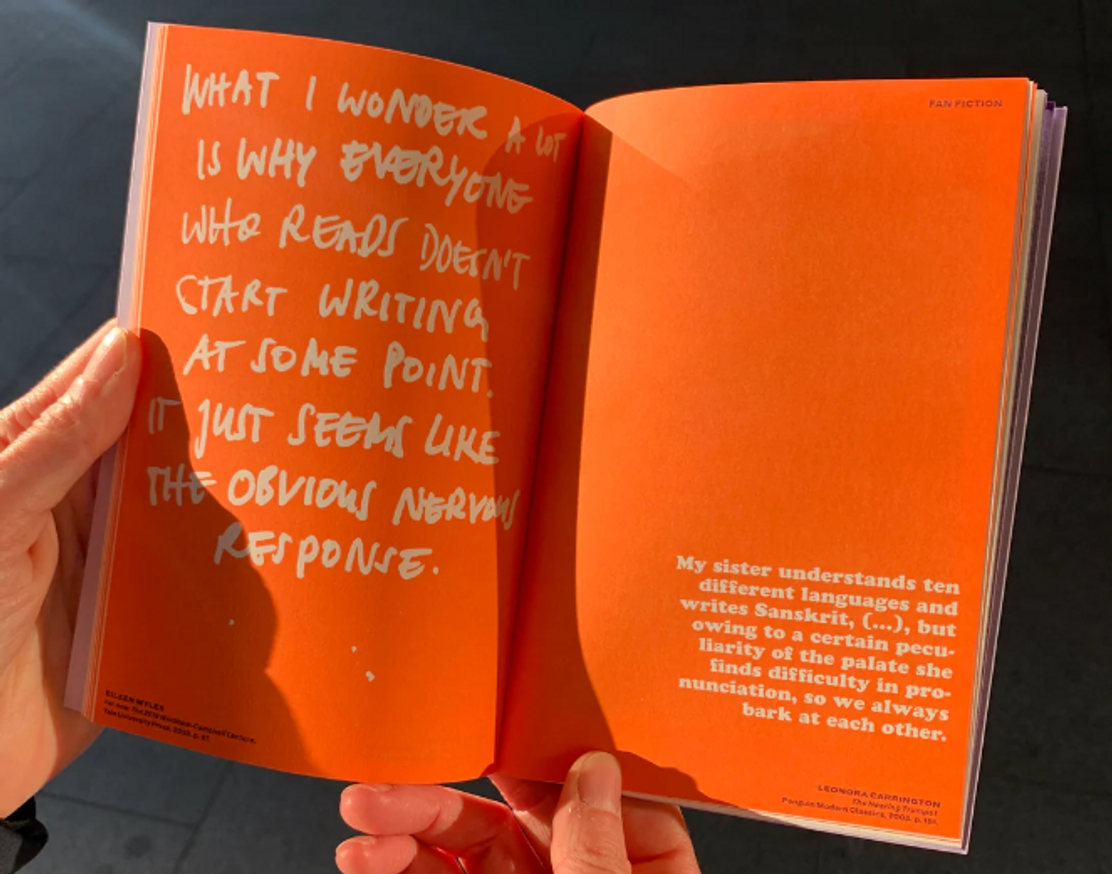 WHAT I WONDER A LOT
IS WHY EVERYONE
WHO READS DOESN'T
START WRITING
AT SOME POINT.
IT JUST SEEMS LIKE
THE OBVIOUS NERVOUS
RESPONSE.
EILEEN MYLES
For now: The 2019 Windham-Campbell Lecture,
Yale University Press, 2020, p. 61.
FAN FICTION
My sister understands ten
different languages and
writes Sanskrit, (...), but
owing to a certain pecu-
liarity of the palate she
finds difficulty in pro-
nunciation, so we always
bark at each other.
LEONORA CARRINGTON
The Hearing Trumpet
Penguin Modern Classics, 2005, p. 151.